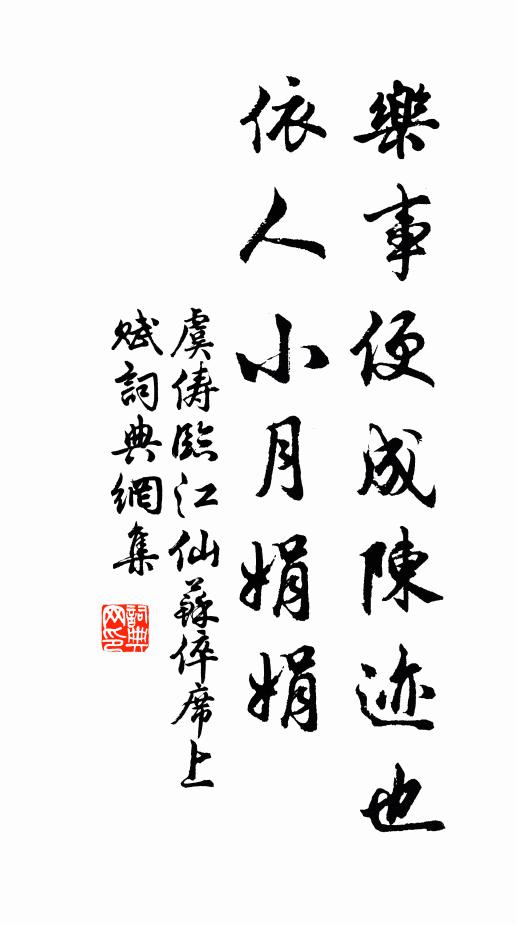 樂事便成陳迹也
依人小月娟娟
虞儔臨江仙蘇倅席上
賦詞典網集
詞典
网印